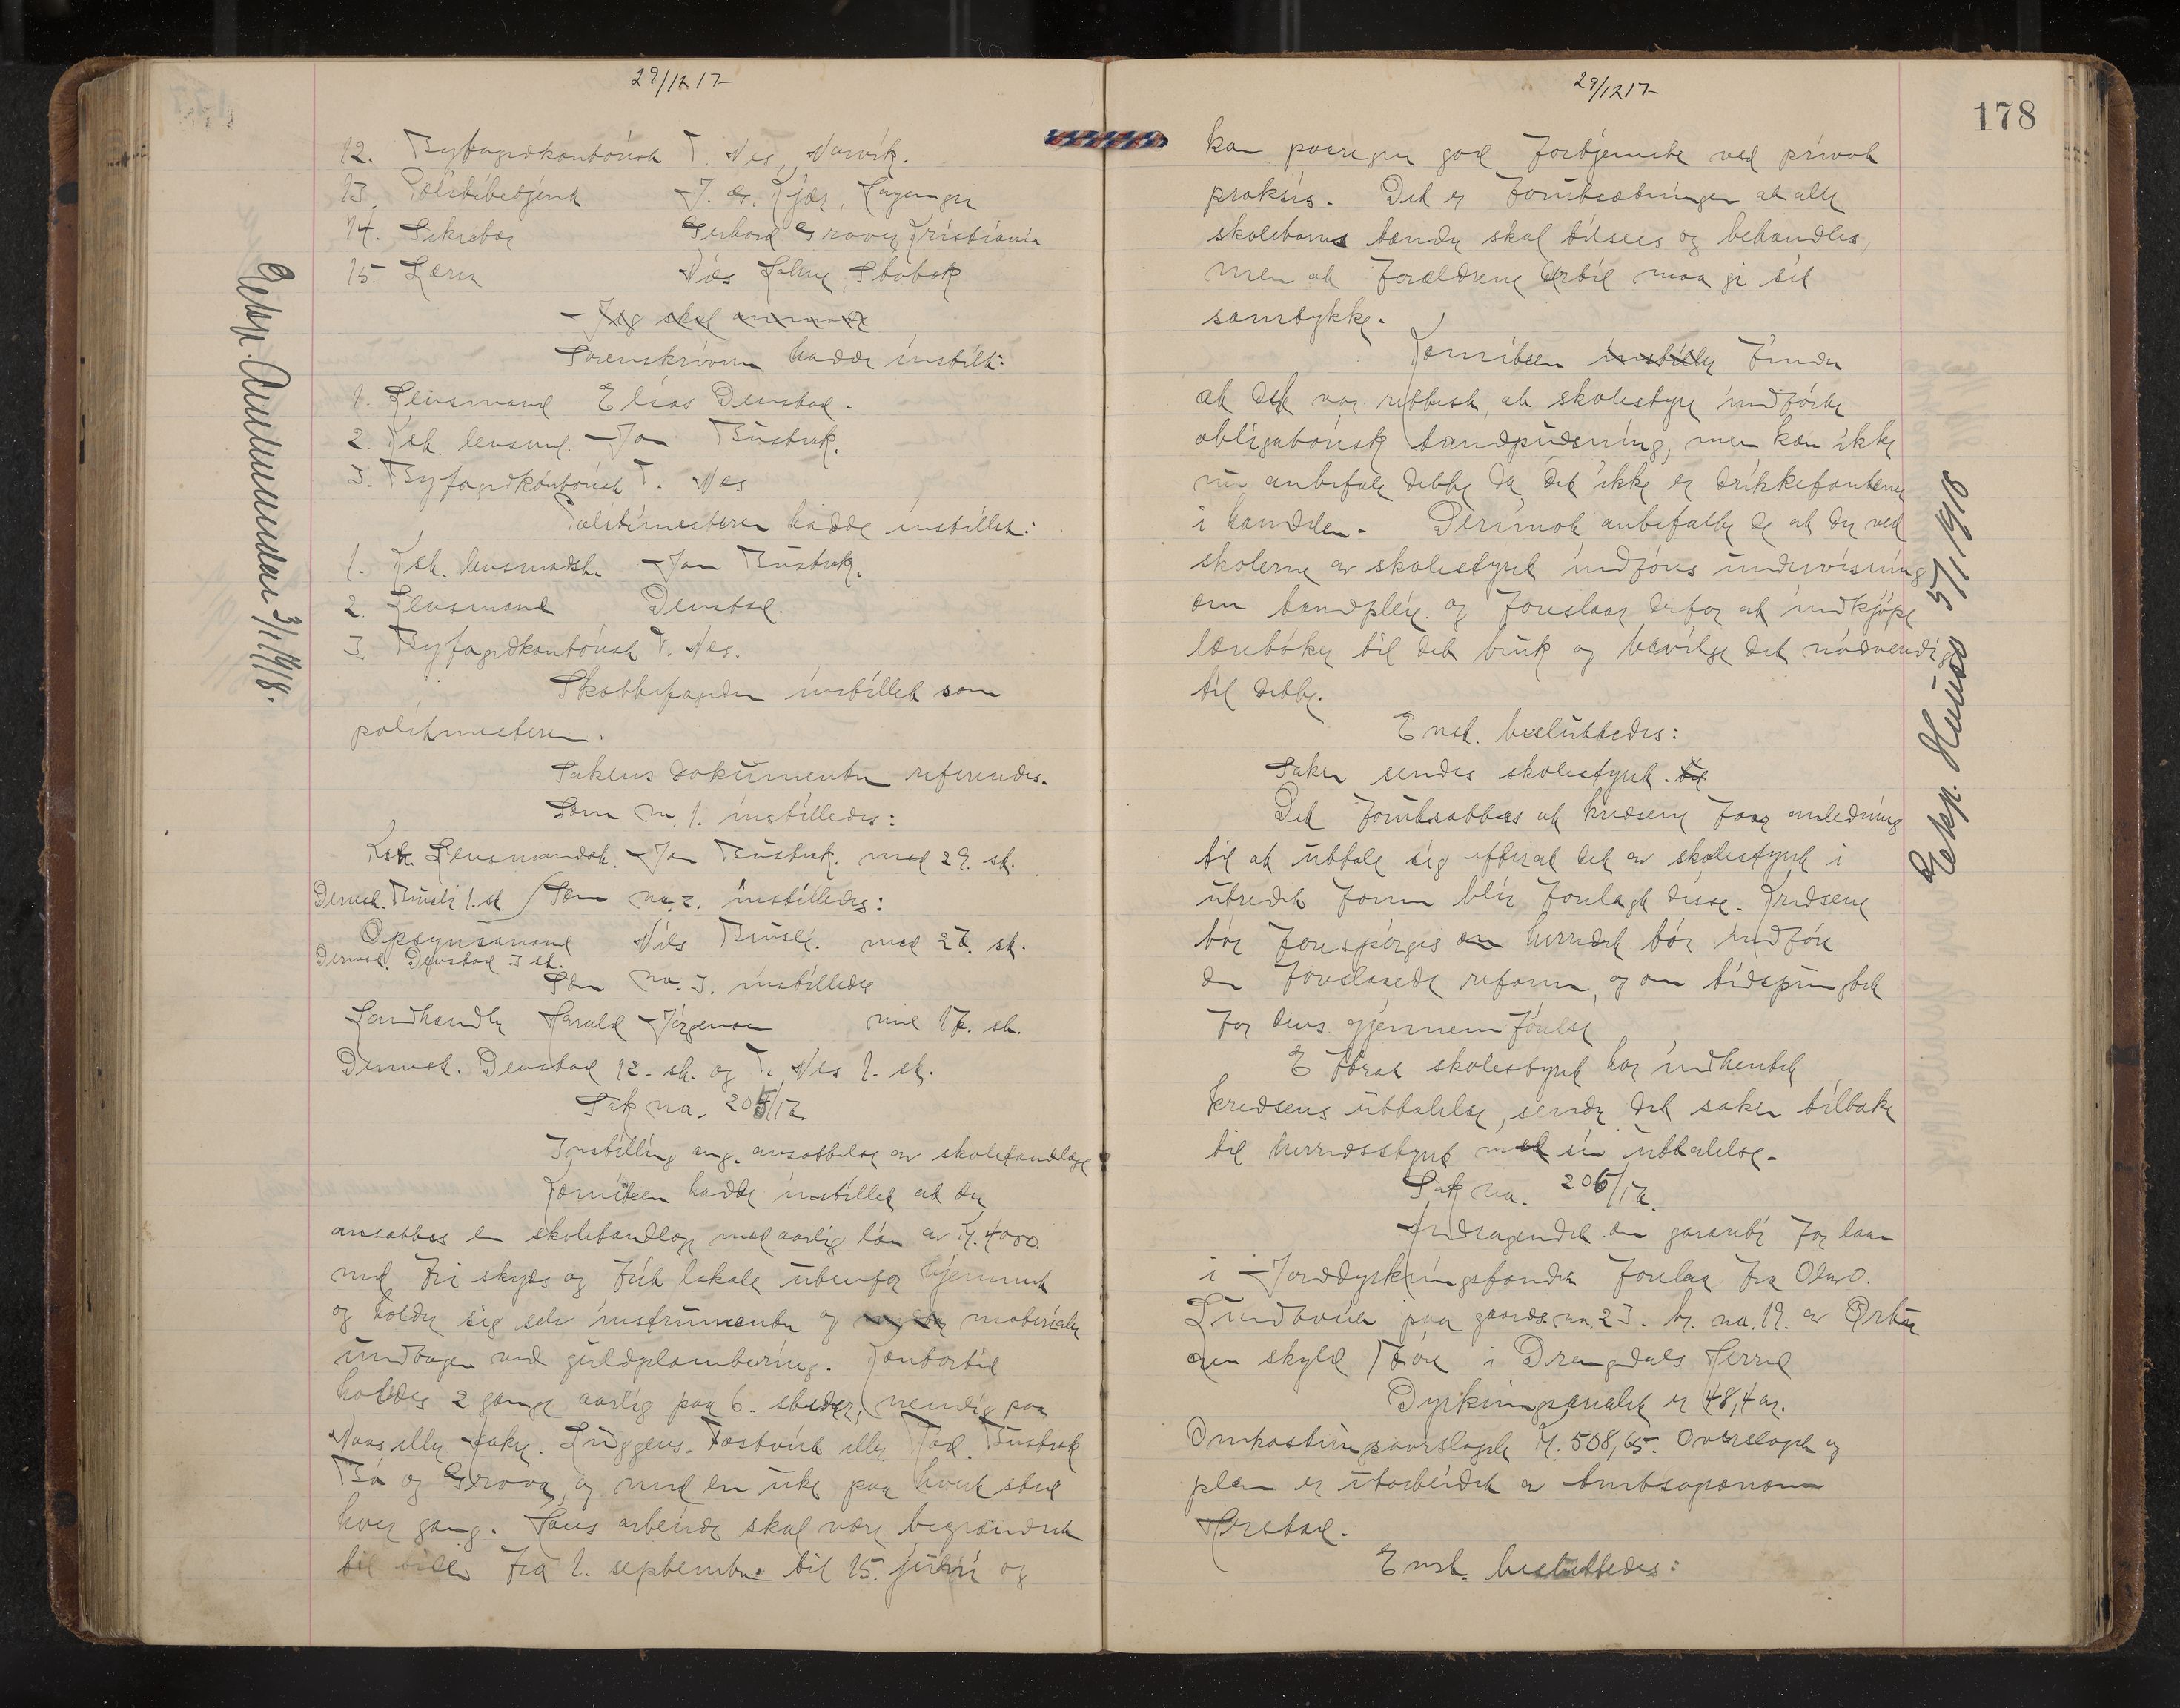 29/12 17-
12. Byfogedkontorist T. Nes, Narvik.
13. Politibetjent J. A. Kjær, Høyanger
14. Sekretær Gerhard Grover Kristiania
15. Lærer Nils Stabæk
- Jeg skal anmode
Sorenskriveren hadde instilt:
1. Lensmand Elias Denstad.
2. Kst. lensmd. Jon Bustrak.
3. Byfogedkontorist T. Nes
Politimesteren hadde instillet:
1. Kst. lensmadsb. Jon Bustrak.
2. Lensmand Denstad.
3. Byfogedkontorist T. Nes.
Skattefogden instillet som
politimesteren.
Sakens dokumenter refereredes.
Som nr. 1. instilledes:
Kst. Lensmandsb. Jon Bustrak. med 29. st.
Dernest. 1. st. Som no. 2. instilledes:
Opsynsmand Nils med 27. st.
Dernest. Denstad 3 st.
Som no. 3. instilledes
Landhandler Harald Jörgensen med 17. st.
Dernest. Denstad 12. st. og T. Nes 1. st.
Sak no. 205/17.
Instilling ang. ansættelse av skoletandlæge
Komiteen hadde instillet at der
ansættes en skoletandlæge med aarlig lön av Kr. 4000.
med fri skyds og frit lokale utenfor hjemmet
og holder sig selv instrumenter og materialer
undtagen ved guldplombering. Kontortid
holdes 2 gange aarlig paa 6. steder, nemlig paa
Naas eller Luggens. Tostveit eller Bustrak
Bö og Grova, og med en uke paa hvert sted
hver gang. Hans arbeide skal være begrændset
til tiden fra 1. september til 15. juni og
Eksp. Amtmanden 3/1 1918.
29/12 17-
178
kan paaregne god fortjeneste ved privat
praksis. Det er forutsætningen at alle
skolebarns tænder skal tilsees og behandles,
men at forældrene dertil maa gi sit
samtykke.
Komiteen instiller finder
at det var rettest, at skolestyret indförte
obligatorisk tandpudsning, men kan ikke
nu anbefale dette da det ikke er drikkefontener
i handelen. Derimot anbefalte de at der ved
skolerne av skolestyret indföres undervisning
om tandpleie og foreslaar derfor at indkjöpe
lærebøker til det bruk og bevilge det nödvendige
til dette.
Enst. besluttedes:
Saken sendes skolestyret. til
Det forutsættes at kredsene faar anledning
til at uttale sig efterat det av skolestyret i
utredet form blir forelagt disse. Kredsene
bör forespörges om herredet bör indföre
den foreslaaede reform, og om tidspunktet
for dens gjennemförelse
Efterat skolestyret har indhentet
kredsens uttalelse, sender det saken tilbake
til herredsstyret med sin uttalelse.
Sak no. 206/17.
Andragendet om garanti for laan
i Jorddyrkningsfondet forelaa fra Olav O.
Lundtveit paa gaards.no. 23. br. no. 19. av
skyld i Drangedals Herred
Dyrkningsarealet er 48,4 ar.
Omkostningsoverslaget kr. 508,65. Overslaget og
plan er utarbeidet av Amtsagronom
Herstad.
Enst. besluttedes:
Eksp. Huuso 5/1 1918